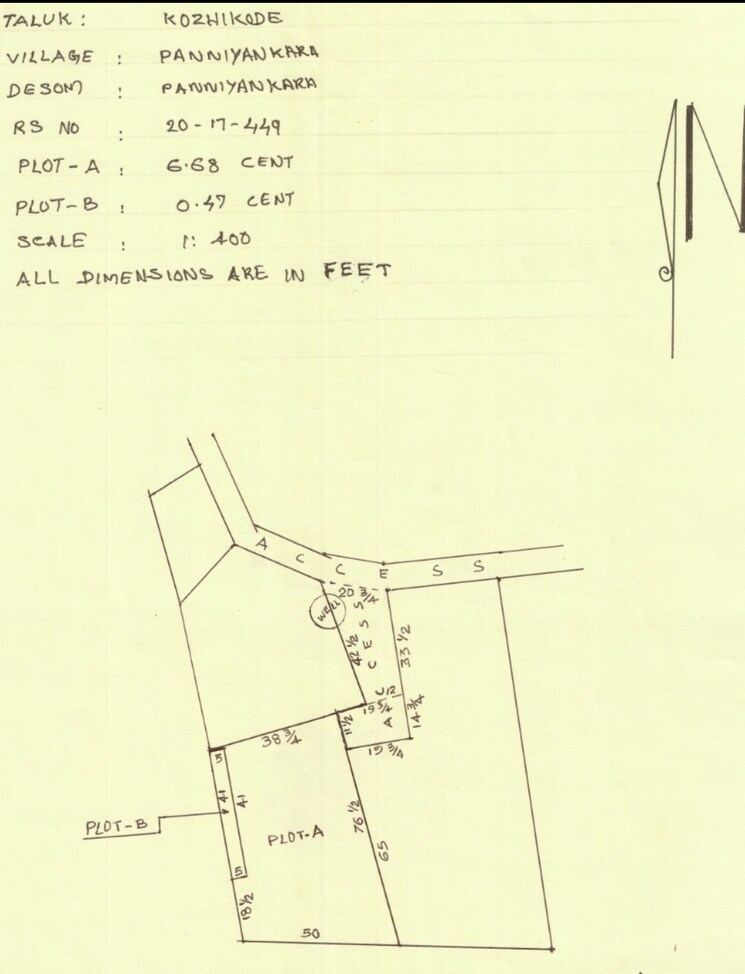 TALUK : KOZHIKODE
VILLAGE : PANNIYANKARA
DESOM : PANNIYANKARA
RS NO : 20-17-449
PLOT-A : 6.68 CENT
PLOT-B : 0.47 CENT
SCALE : 1: 400
ALL DIMENSIONS ARE IN FEET
N
ACCESS
20 3/4
WELL
ACCESS
42 1/2
33 1/2
19 3/4
14 3/4
11 1/2
19 3/4
38 3/4
5
41
41
PLOT-B
PLOT-A
76 1/2
65
5
18 1/2
50